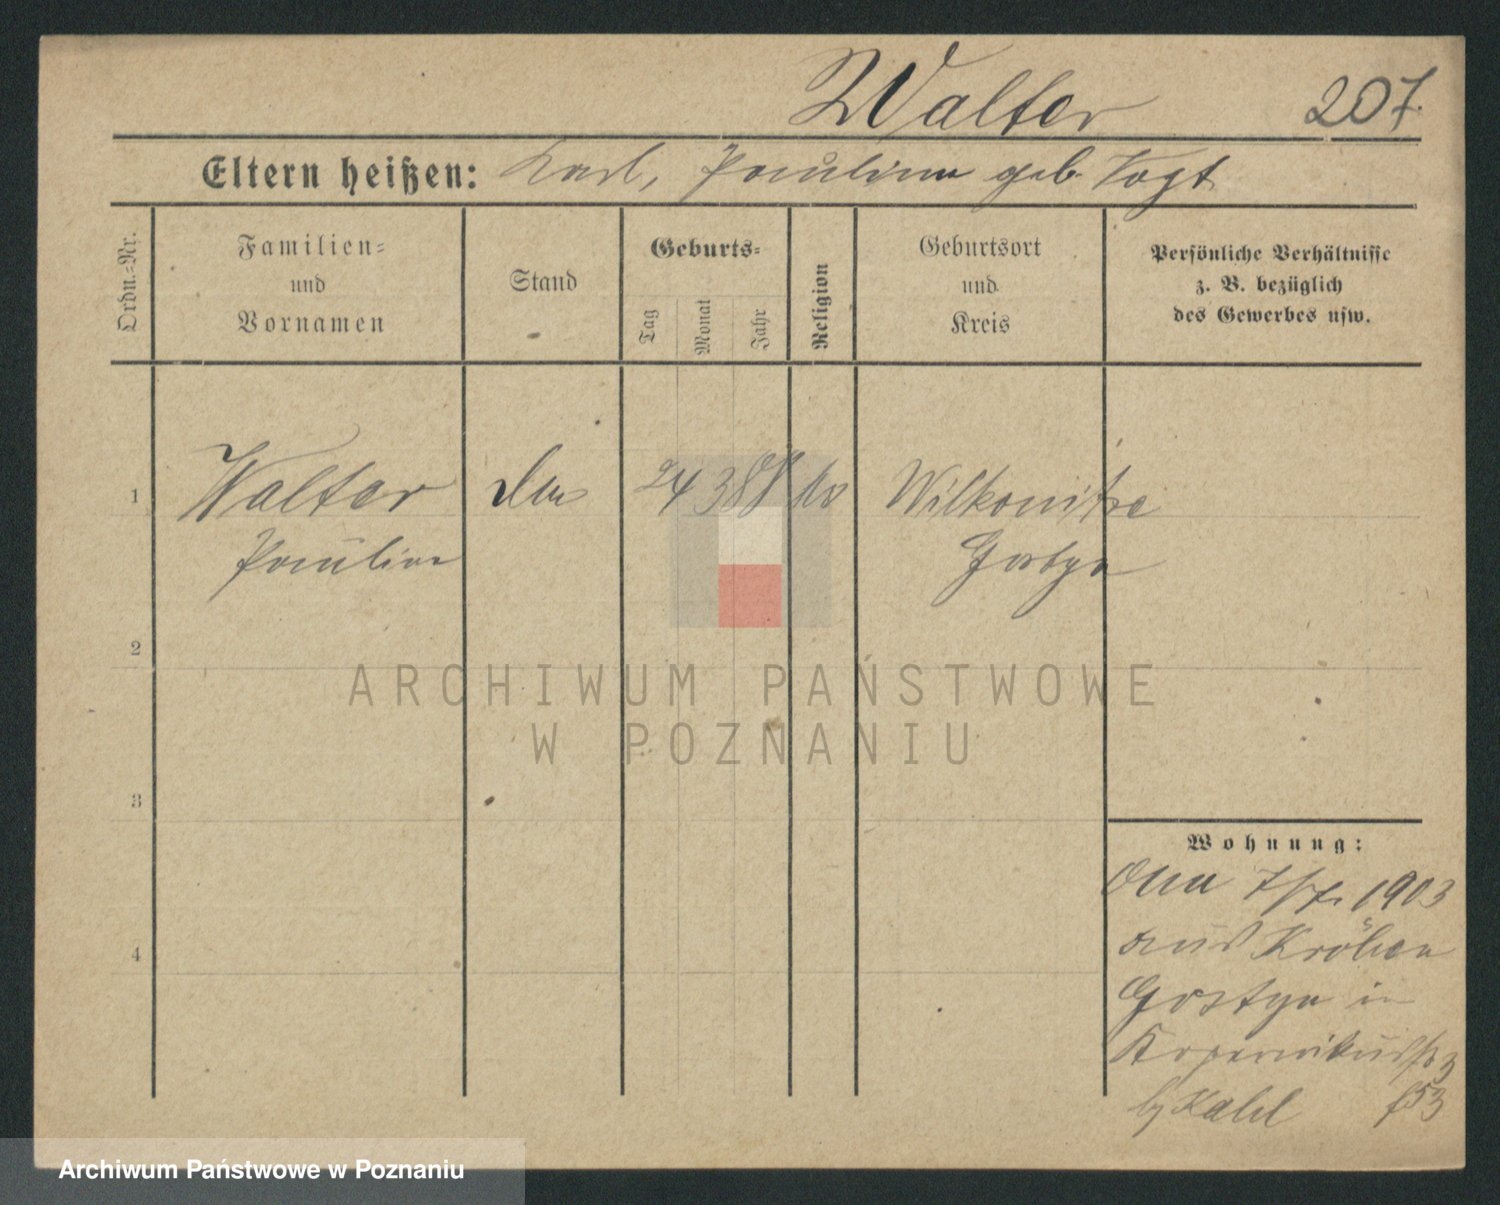 Walter 207.
Eltern heißen: Karl, Pauline geb. Vogt
Ordn.-Nr.
Familien-
und
Vornamen
Stand
Geburts-
Tag
Monat
Jahr
Religion
Geburtsort
und
Kreis
Persönliche Verhältnisse
z. B. bezüglich
des Gewerbes usw.
1
Walter
24 3 88
Wilkonitze
Pauline
Gostyn
2
ARCHIWUM PAŃSTWOWE
W POZNANIU
3
Wohnung:
7/7. 1903
aus Kröben
4
Gostyn in
3
Archiwum Państwowe w Poznaniu